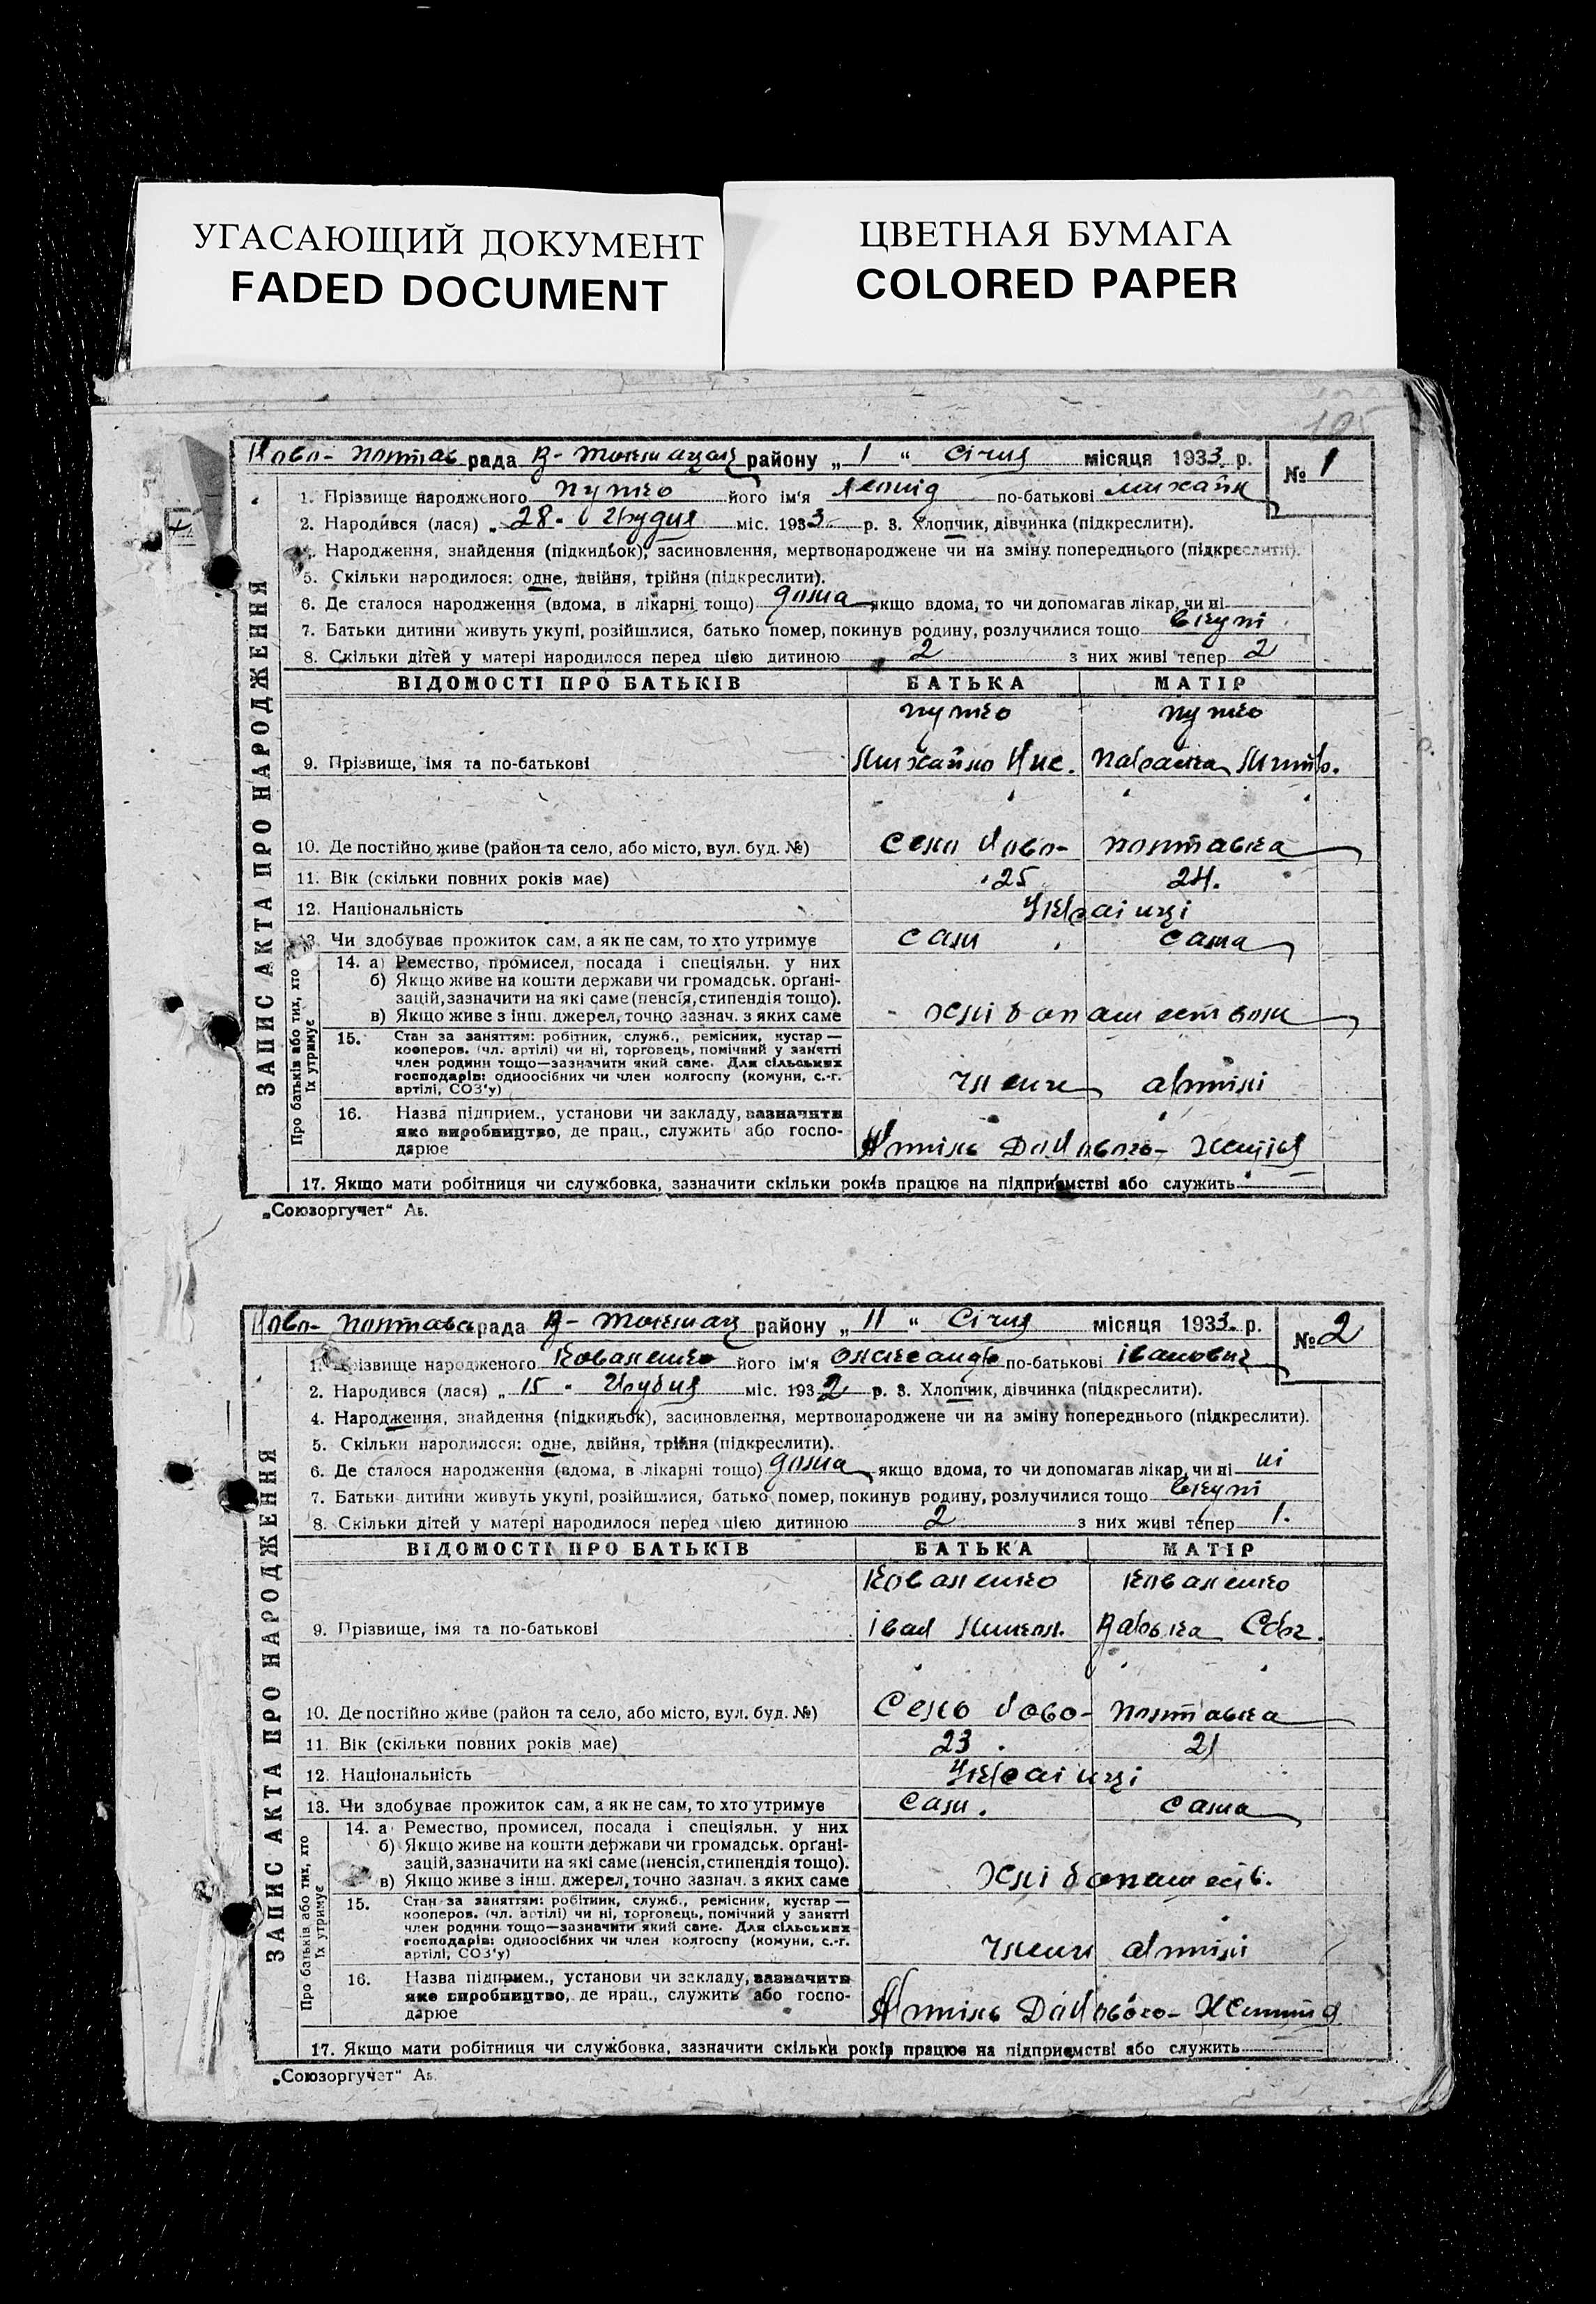 УГАСАЮЩИЙ ДОКУМЕНТ
FADED DOCUMENT
ЦВЕТНАЯ БУМАГА
COLORED PAPER
195
ЗАПИС АКТА ПРО НАРОДЖЕННЯ
Ново-Полтав рада В-Токмацьк району „ 1 “ Січня місяця 1933 р. № 1
1. Прізвище народженого Путко його ім'я Леонід по-батькові Михайл
2. Народився (лася) „ 28 „ Грудня міс. 1933 р. 3. Хлопчик, дівчинка (підкреслити).
4. Народження, знайдення (підкидьок), засиновлення, мертвонароджене чи на зміну попереднього (підкреслити).
5. Скільки народилося: одне, двійня, трійня (підкреслити).
6. Де сталося народження (вдома, в лікарні тощо) дома якщо вдома, то чи допомагав лікар, чи ні
7. Батьки дитини живуть укупі, розійшлися, батько помер, покинув родину, розлучилися тощо вкупі
8. Скільки дітей у матері народилося перед цією дитиною 2 з них живі тепер 2
ВІДОМОСТІ ПРО БАТЬКІВ БАТЬКА МАТІР
Путко Путко
9. Прізвище, імя та по-батькові Михайло Ник. Параска Митр.
10. Де постійно живе (район та село, або місто, вул. буд. №) Село Ново- Полтавка
11. Вік (скільки повних років має) 25 24.
12. Національність Українці
13. Чи здобуває прожиток сам, а як не сам, то хто утримує сам сама
Про батьків або тих, хто їх утримує
14. а) Ремество, промисел, посада і спеціяльн. у них
б) Якщо живе на кошти держави чи громадськ. органі-
зацій, зазначити на які саме (пенсія, стипендія тощо).
в) Якщо живе з інш. джерел, точно зазнач. з яких саме Хліборапаством
15. Стан за заняттям: робітник, служб., ремісник, кустар —
кооперов. (чл. артілі) чи ні, торговець, помічний у занятті
член родини тощо—зазначити який саме. Для сільських
господарів: одноосібних чи член колгоспу (комуни, с.-г.
артілі, СОЗ'у) Члени артілі
16. Назва підприєм., установи чи закладу, зазначити
яке виробництво, де прац., служить або госпо-
дарює Артіль До Нового- Життя
17. Якщо мати робітниця чи службовка, зазначити скільки років працює на підприємстві або служить
„Союзоргучет“ Аз.
ЗАПИС АКТА ПРО НАРОДЖЕННЯ
Ново-Полтавсь рада В-Токмац району „ 11 “ Січня місяця 1933 р. № 2
1. Прізвище народженого Коваленко його ім'я Олександр по-батькові Іванович
2. Народився (лася) „ 15 „ Грудня міс. 1932 р. 3. Хлопчик, дівчинка (підкреслити).
4. Народження, знайдення (підкидьок), засиновлення, мертвонароджене чи на зміну попереднього (підкреслити).
5. Скільки народилося: одне, двійня, трійня (підкреслити).
6. Де сталося народження (вдома, в лікарні тощо) дома якщо вдома, то чи допомагав лікар, чи ні ні
7. Батьки дитини живуть укупі, розійшлися, батько помер, покинув родину, розлучилися тощо вкупі
8. Скільки дітей у матері народилося перед цією дитиною 2 з них живі тепер 1.
ВІДОМОСТІ ПРО БАТЬКІВ БАТЬКА МАТІР
Коваленко Коваленко
9. Прізвище, імя та по-батькові Іван Микол. Варька Серг.
10. Де постійно живе (район та село, або місто, вул. буд. №) Село Ново- Полтавка
11. Вік (скільки повних років має) 23 21
12. Національність Українці
13. Чи здобуває прожиток сам, а як не сам, то хто утримує сам. сама
Про батьків або тих, хто їх утримує
14. а) Ремество, промисел, посада і спеціяльн. у них
б) Якщо живе на кошти держави чи громадськ. органі-
зацій, зазначити на які саме (пенсія, стипендія тощо).
в) Якщо живе з інш. джерел, точно зазнач. з яких саме
15. Стан за заняттям: робітник, служб., ремісник, кустар —
кооперов. (чл. артілі) чи ні, торговець, помічний у занятті
член родини тощо—зазначити який саме. Для сільських
господарів: одноосібних чи член колгоспу (комуни, с.-г.
артілі, СОЗ'у) Члени артілі
16. Назва підприєм., установи чи закладу, зазначити
яке виробництво, де прац., служить або госпо-
дарює Артіль До Нового- Життя
17. Якщо мати робітниця чи службовка, зазначити скільки років працює на підприємстві або служить
„Союзоргучет“ Аз.